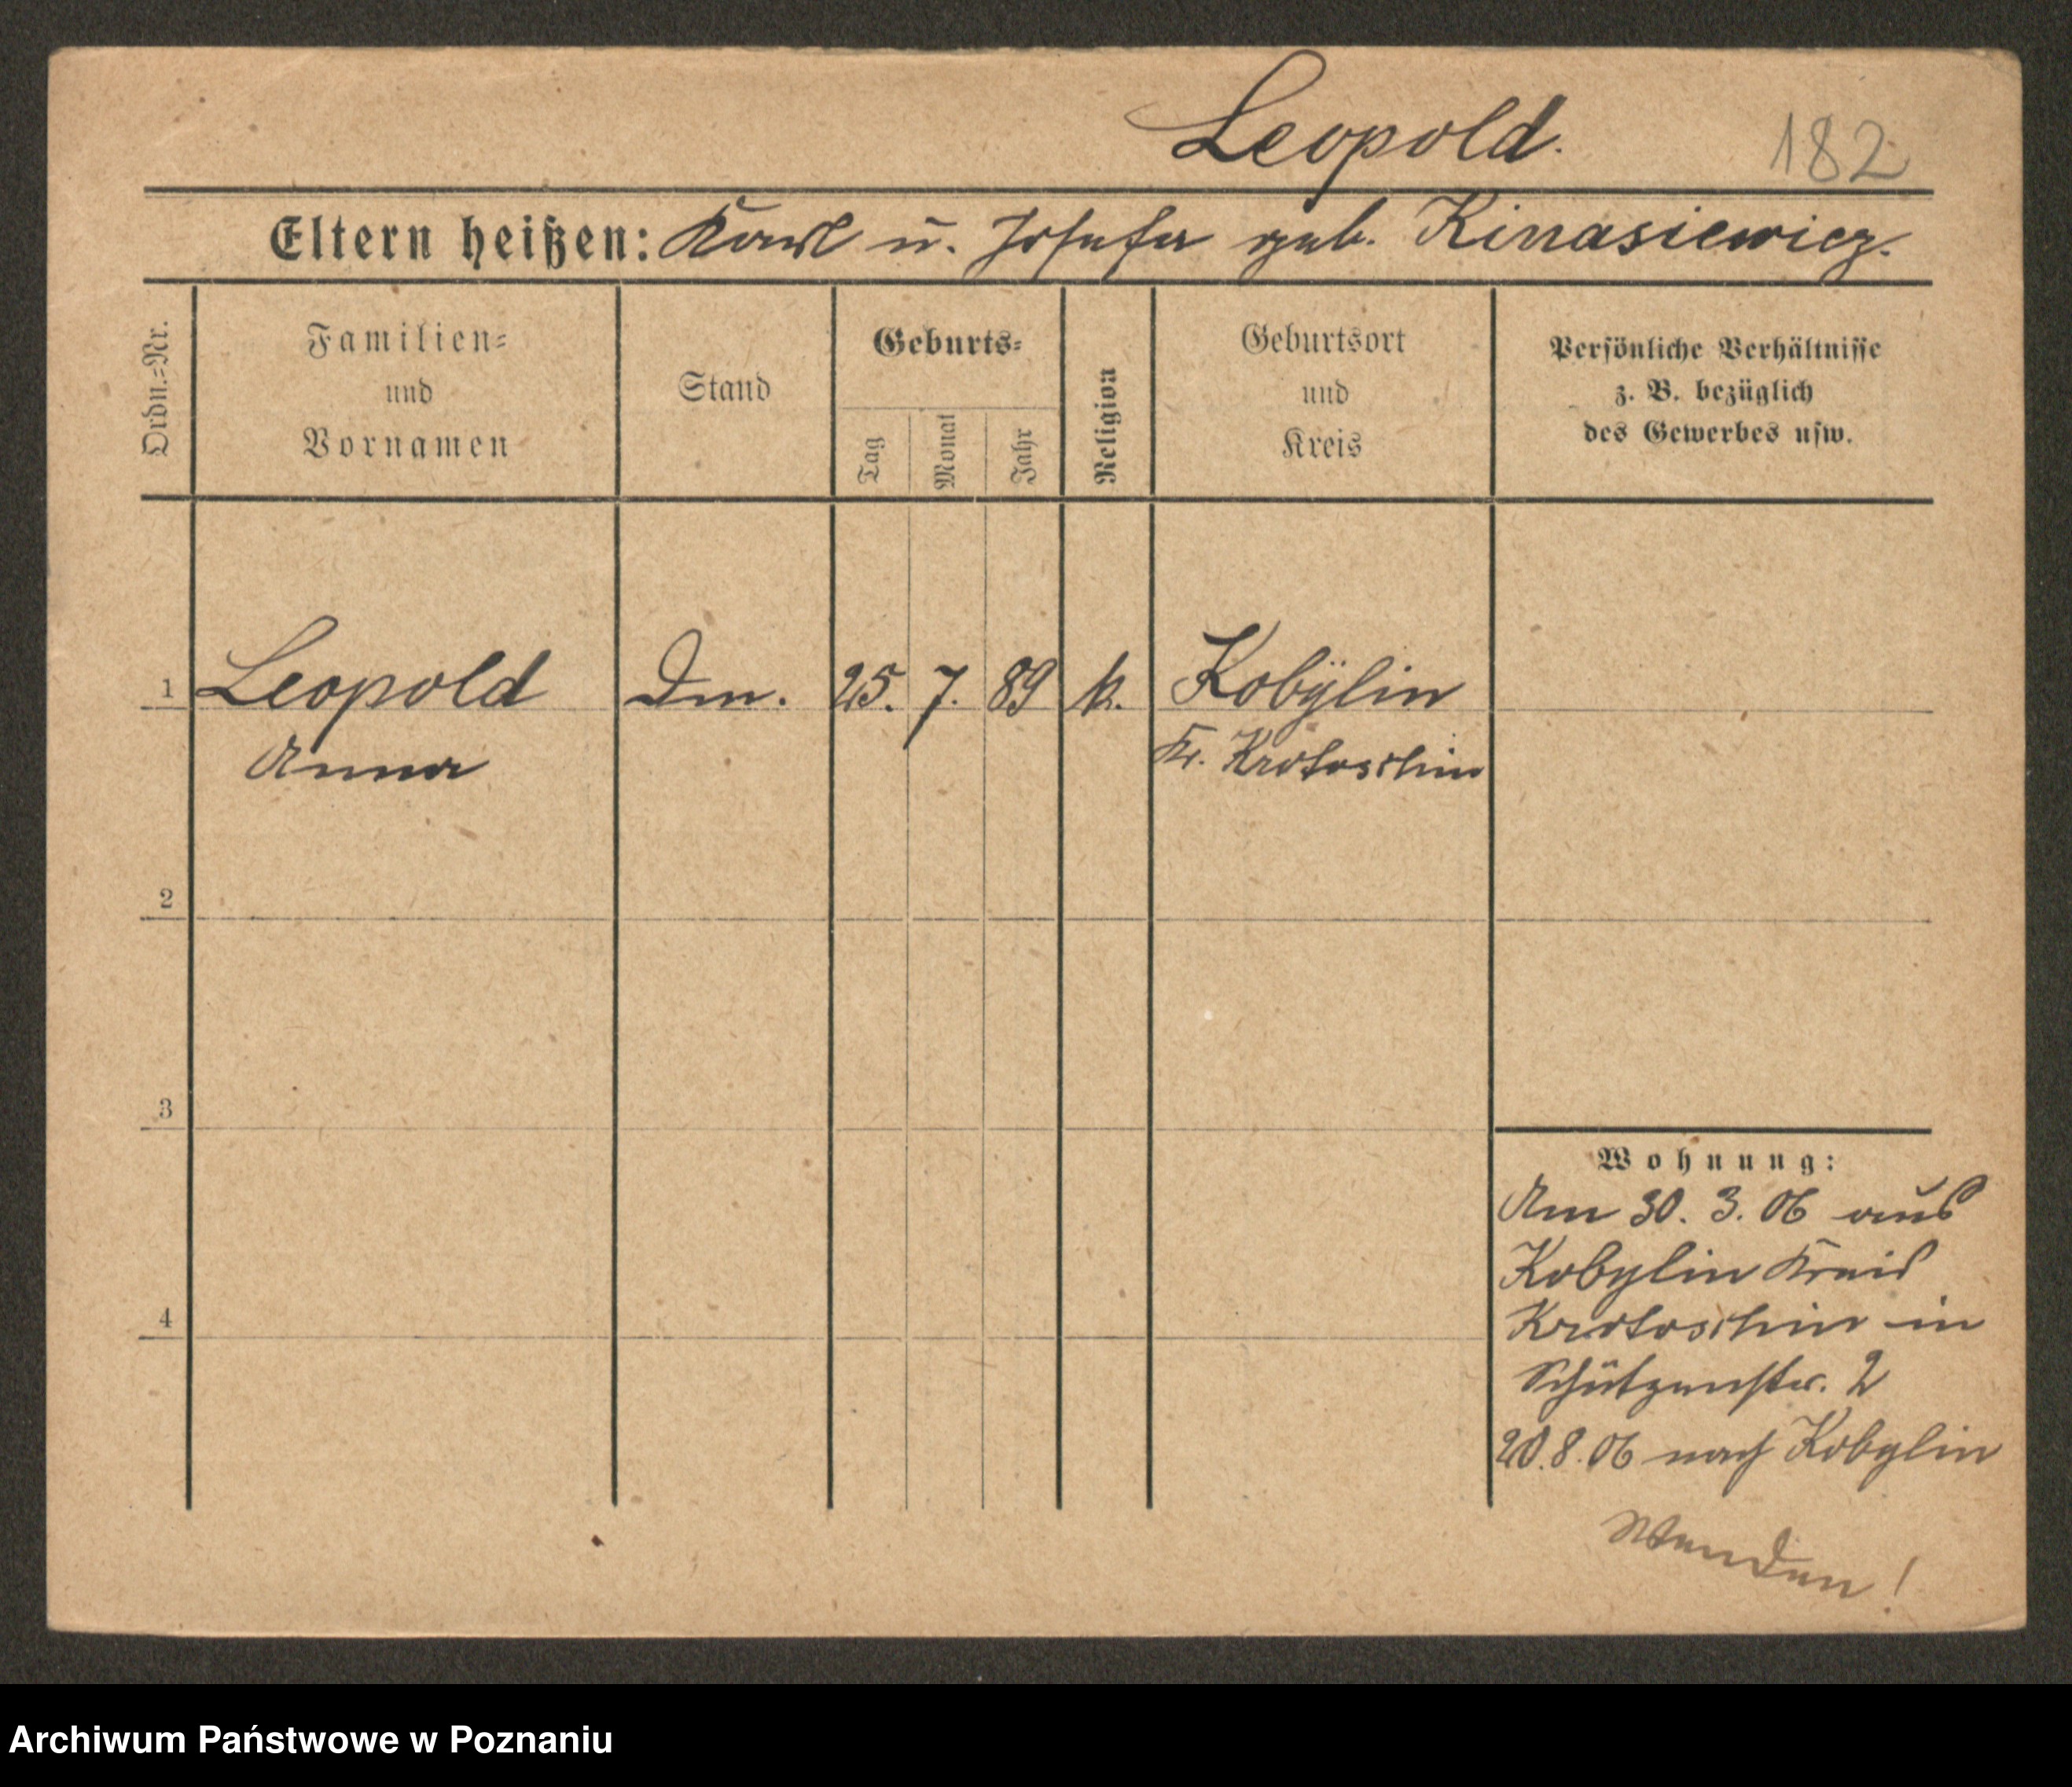 Leopold.
182
Eltern heißen: Karl u. Josefa geb. Kinasiewicz.
Ordn.=Nr.
Familien=
und
Vornamen
Stand
Geburts=
Tag
Monat
Jahr
Religion
Geburtsort
und
Kreis
Persönliche Verhältnisse
z. B. bezüglich
des Gewerbes usw.
1 Leopold Dm. 25. 7. 89 k. Kobÿlin
Anna Kr. Krotoschin
2
3
4
Wohnung:
Am 30. 3. 06 aus
Kobylin Kreis
Krotoschin in
Schützenstr. 2
20.8.06 nach Kobylin
Wenden!
Archiwum Państwowe w Poznaniu